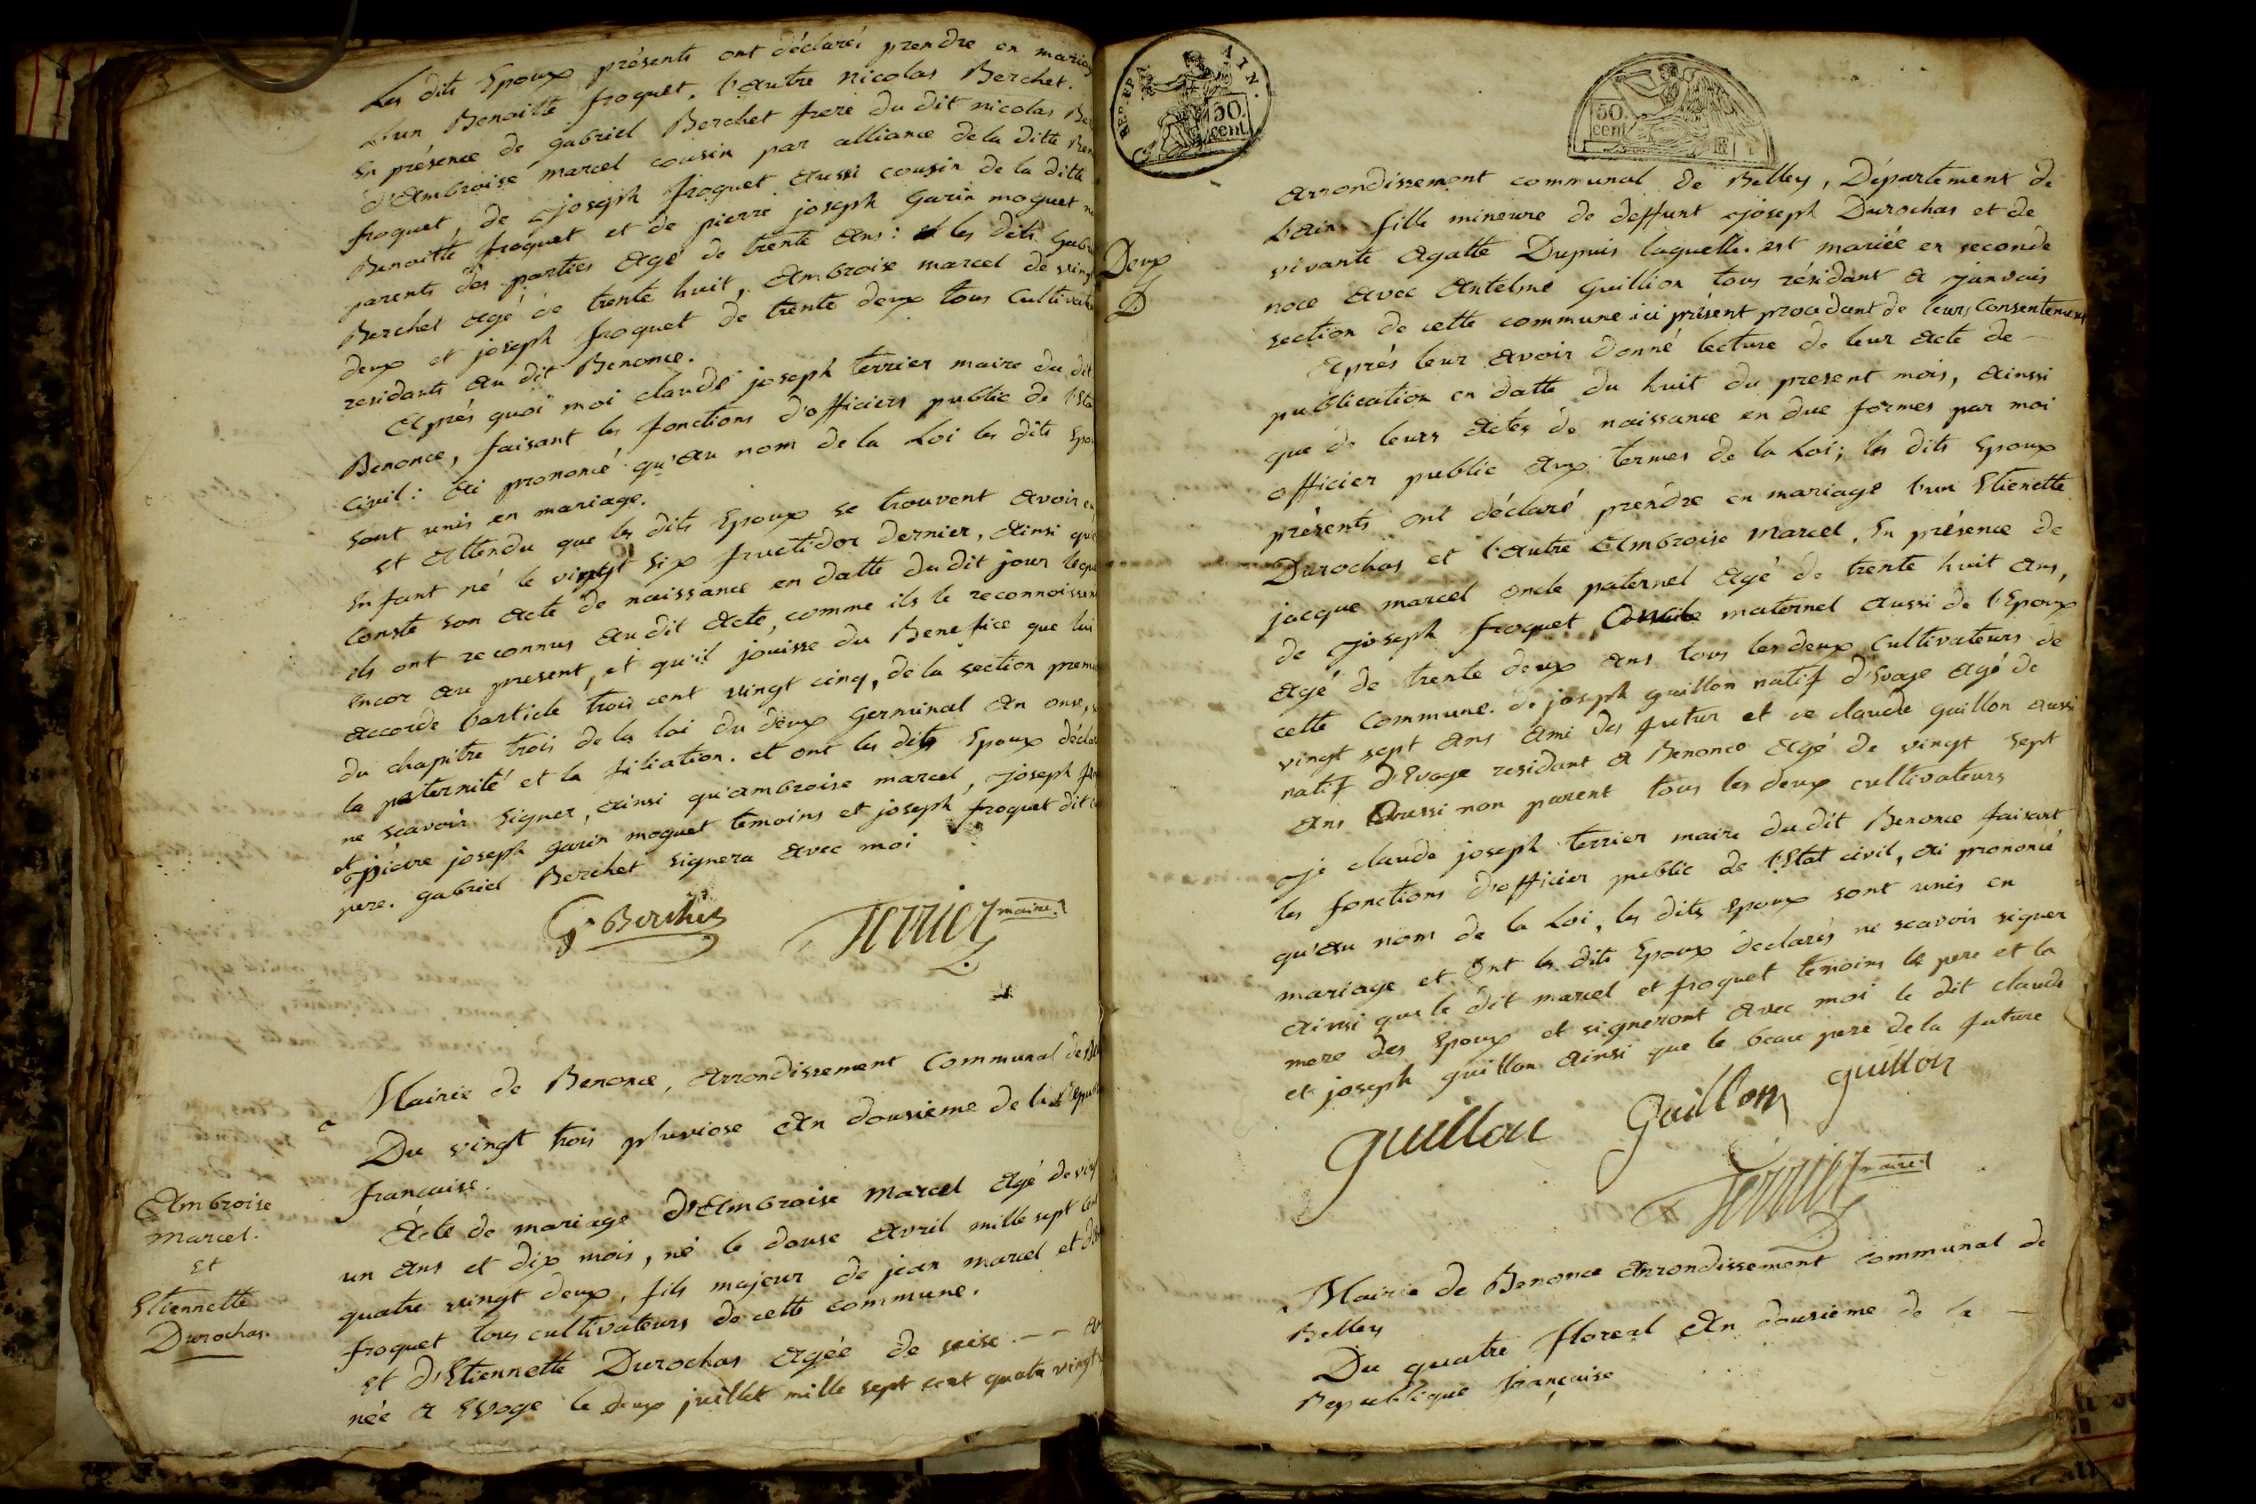 Les dits Epoux présents ont déclaré prendre en mariag
L'un Benoitte froquet, l'autre nicolas Berchet.
En présence de gabriel Berchet frere du dit nicolas Ber
d'Ambroise marcel cousin par alliance de la ditte Ben
froquet, de joseph froquet aussi cousin de la ditte
Benoitte froquet et de pierre joseph Garin moquet no
parents des parties agé de trente ans: et les dits Gab
Berchet agé de trente huit, Ambroise marcel de ving
deux et joseph froquet de trente deux tous Cultivate
residants au dit Benonce.
Après quoi moi claude joseph terrier maire du dit
Benonce, faisant les fonctions d'officiers public de l'Eta
Civil: ai prononcé qu'au nom de la Loi les dits Epou
sont unis en mariage.
et attendu que les dits Epoux se trouvent avoir en
Enfant né le vingt six fructidor dernier, ainsi que
Conste son acte de naissance en datte du dit jour lequel
ils ont reconnus au dit acte, comme ils le reconnoissent
encor au present, et qu'il jouisse du Benefice que lui
accorde l'article trois cent vingt cinq, de la section premie
du chapitre trois de la loi du deux germinal an onse,
la paternité et la filiation. et ont les dits Epoux décla
ne scavoir signer, ainsi qu'ambroise marcel, joseph fro
et pierre joseph garin moquet temoins et joseph froquet dit
pere. gabriel Berchet signera avec moi
G Berchet
Terrier maire
Mairie de Benonce, arrondissement Communal de Bel
Du vingt trois pluviose an dousieme de la Repub
française.
Ambroise
marcel.
et
Etiennette
Durochas.
Acte de mariage d'Ambroise Marcel agé de ving
un ans et dix mois, né le douse avril mille sept cent
quatre vingt deux, fils majeur de jean marcel et
froquet tous cultivateurs de cette commune.
et d'Etiennette Durochas agée de seise
née a Evoge le deux juillet mille sept cent quatre vingt
REP. FRA. AIN.
50.
cent.
50.
cent
Deux
arrondissement communal de Belley, Département de
l'ain fille mineure de deffunt joseph Durochas et de
vivante agatte Dupuis laquelle est mariée en seconde
noce avec antelme guillion tous résidant a janvais
section de cette commune ici présent procedant de leurs Consentement
Après leur avoir donné lecture de leur acte de
publication en datte du huit du present mois, ainsi
que de leurs actes de naissance en due formes par moi
officier public aux termes de la Loi; les dits Epoux
présents ont déclaré prendre en mariage l'un Etienette
Durochas et l'autre Ambroise Marcel. En présence de
jacque marcel oncle paternel agé de trente huit ans,
de joseph froquet, maternel aussi de l'Epoux
agé de trente deux ans tous les deux Cultivateurs de
cette commune. de joseph guillon natif d'Evoge agé de
vingt sept ans ami des futur et de claude guillon aussi
natif d'Evoge residant a Benonce agé de vingt sept
ans aussi non parent tous les deux cultivateurs
je claude joseph terrier maire du dit Benonce faisant
les fonctions d'officier public de l'Etat civil, ai prononcé
qu'au nom de la Loi, les dits Epoux sont unis en
mariage et ont les dits Epoux declarés ne scavoir signer
ainsi que le dit marcel et froquet temoins le pere et la
mere des Epoux et signeront avec moi le dit claude
et joseph guillon ainsi que le beau pere de la future
guillon Guillon guillon
Terrier maire
Mairie de Benonce arrondissement communal de
Belley
Du quatre floreal an dousieme de la
Republique française